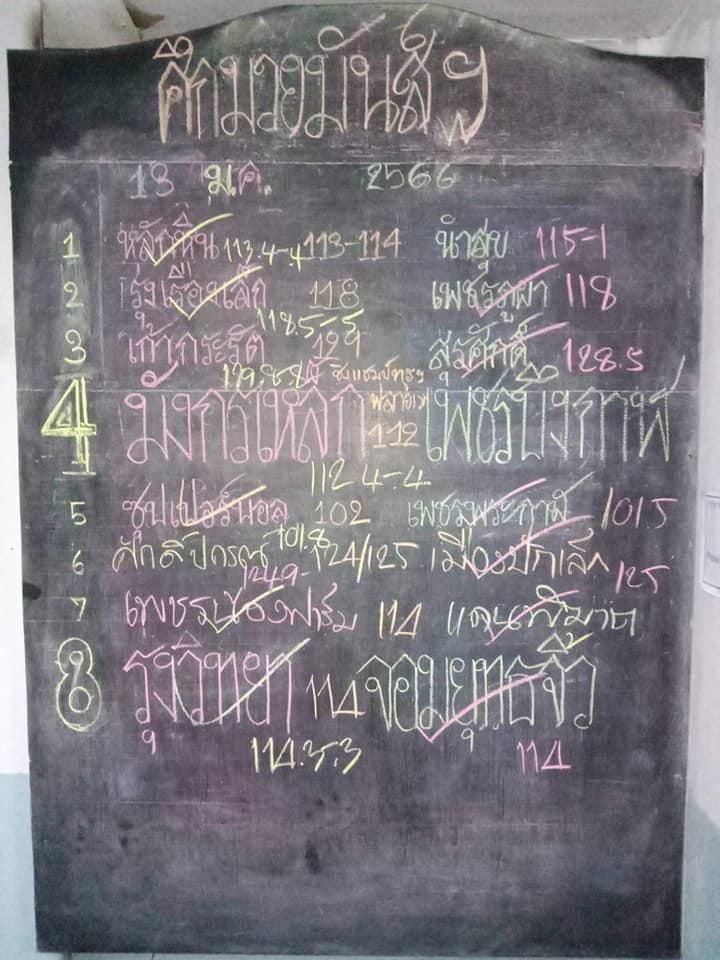 ศึกมวยมันส์ฯ
18 ม.ค. 2566
1 หลักหิน 113.4-.4 113-114 นำสุข 115-1
2 รุ่งเรืองเล็ก 118 เพชรภูผา 118
118.5-.5
3 เก้ากะรัต 129 สุรศักดิ์ 128.5
129.8.8 ชิงแชมป์
4 มังกรเหล็ก 112 เพชรบึงกาฬ
112 4-.4
5 ซุปเปอร์บอล 102 เพชรพระกาฬ 101.5
101.8
6 ศักดิ์ปกรณ์ 124/125 เมืองปักเล็ก 125
124.9-
7 114 แดนพิมาต
8 รุ่งวิทยา 114 จอมยุทธจิ๋ว
114.3.3 114